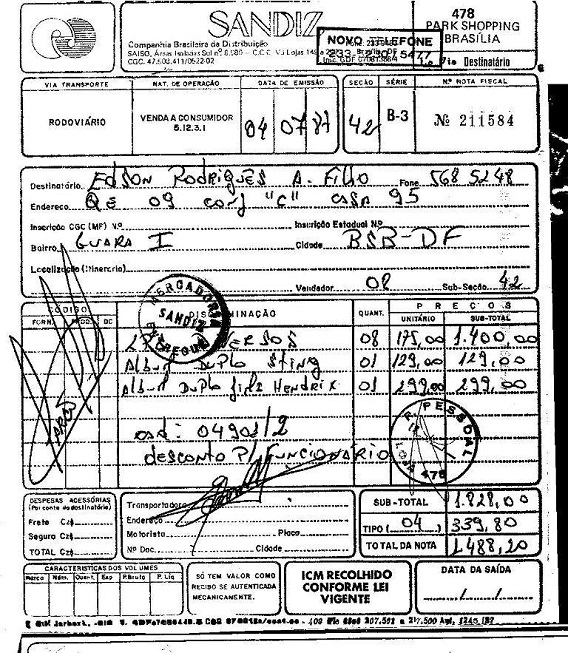 SANDIZ
Companhia Brasileira de Distribuição
478
PARK SHOPPING
BRASÍLIA
NOVO TELEFONE
233-2305477
Via Destinatário
VIA TRANSPORTE
RODOVIÁRIO
NAT. DE OPERAÇÃO
VENDA A CONSUMIDOR
5.12.3.1
DATA DE EMISSÃO
04 07 87
SECÃO
42
SÉRIE
B-3
Nº NOTA FISCAL
Nº 211584
Destinatário Edson Rodrigues A. Filho Fone 568 5248
Endereco QE 09 conj "C" casa 95
Inscrição CGC (MF) Nº Inscrição Estadual Nº
Bairro GUARA I Cidade BSB-DF
Localização (Itinerário)
Vendedor 08 Sub-Secão 42
CÓDIGO
FORN. DC
DISCRIMINAÇÃO
QUANT.
PREÇOS
UNITÁRIO SUB-TOTAL
MERCADORIA
SANDIZ
ENTREGUE
08 175,00 1.400,00
Album Duplo Sting 01 129,00 129,00
Album Duplo Hendrix 01 299,00 299,00
04901/2
desconto P/ Funcionário
R. PESSOAL
LOJA 478
DESPESAS ACESSÓRIAS
(Por conta do destinatário)
Frete Cz$
Seguro Cz$
TOTAL Cz$
Transportadora
Endereço
Motorista Placa
Nº Doc. Cidade
SUB-TOTAL 1.828,00
TIPO (04) 339,80
TOTAL DA NOTA 1.488,20
CARACTERISTICAS DOS VOLUMES
Marca Núm. Quant. Esp P. Bruto P. Liq
SÓ TEM VALOR COMO
RECIBO SE AUTENTICADA
MECANICAMENTE.
ICM RECOLHIDO
CONFORME LEI
VIGENTE
DATA DA SAÍDA